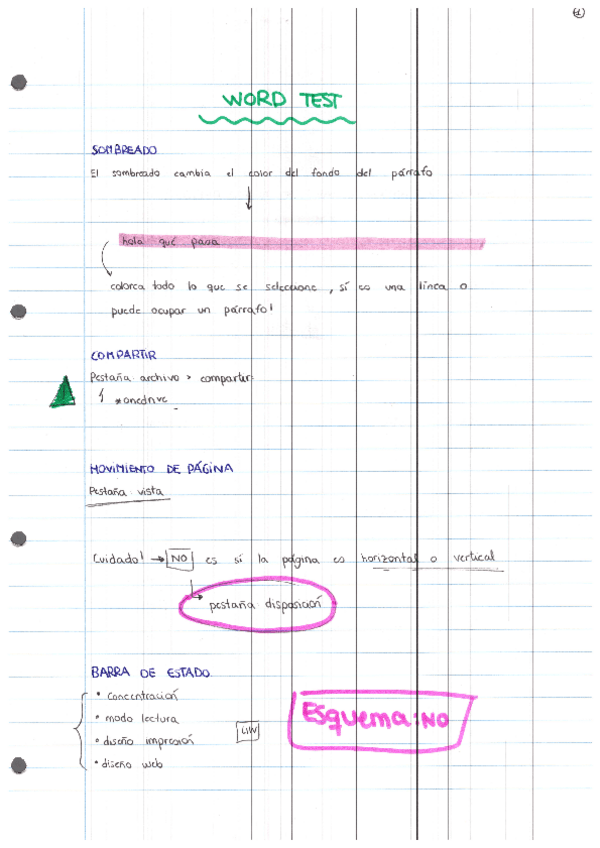 1
WORD TEST
SOMBREADO
El sombreado cambia el color del fondo del párrafo
hola qué pasa
colorea todo lo que se seleccione, sí es una línea o
puede ocupar un párrafo!
COMPARTIR
Pestaña archivo > compartir
*onedrive
MOVIMIENTO DE PÁGINA
Pestaña vista
Cuidado! → NO es sí la página es horizontal o vertical
pestaña disposición
BARRA DE ESTADO
• Concentración
• modo lectura
• diseño impresión
• diseño web
Esquema: NO